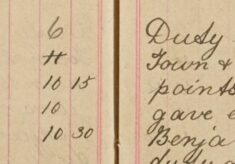 6 Duty
11 Town &
10 15 points
10 gave
10 30 Benja
duty